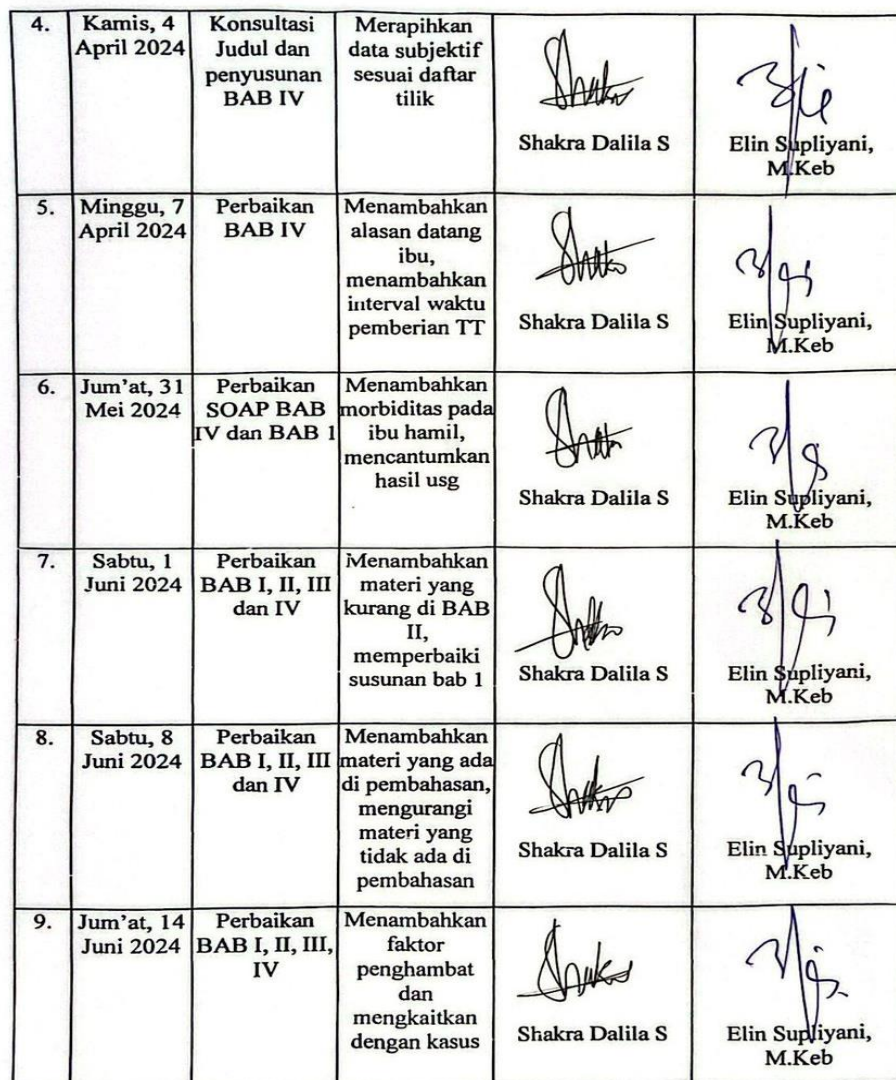 4.
Kamis, 4
April 2024
Konsultasi
Judul dan
penyusunan
BAB IV
Merapihkan
data subjektif
sesuai daftar
tilik
Shakra Dalila S
Elin Supliyani,
M.Keb
5.
Minggu, 7
April 2024
Perbaikan
BAB IV
Menambahkan
alasan datang
ibu,
menambahkan
interval waktu
pemberian TT
Shakra Dalila S
Elin Supliyani,
M.Keb
6.
Jum'at, 31
Mei 2024
Perbaikan
SOAP BAB
IV dan BAB 1
Menambahkan
morbiditas pada
ibu hamil,
mencantumkan
hasil usg
Shakra Dalila S
Elin Supliyani,
M.Keb
7.
Sabtu, 1
Juni 2024
Perbaikan
BAB I, II, III
dan IV
Menambahkan
materi yang
kurang di BAB
II,
memperbaiki
susunan bab 1
Shakra Dalila S
Elin Supliyani,
M.Keb
8.
Sabtu, 8
Juni 2024
Perbaikan
BAB I, II, III
dan IV
Menambahkan
materi yang ada
di pembahasan,
mengurangi
materi yang
tidak ada di
pembahasan
Shakra Dalila S
Elin Supliyani,
M.Keb
9.
Jum'at, 14
Juni 2024
Perbaikan
BAB I, II, III,
IV
Menambahkan
faktor
penghambat
dan
mengkaitkan
dengan kasus
Shakra Dalila S
Elin Supliyani,
M.Keb